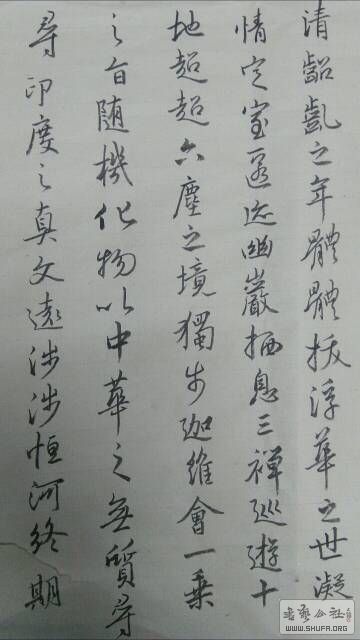 清齠齔之年體體拔浮華之世凝
情定室匿迹幽巖栖息三禪巡遊十
地超超六塵之境獨步迦維會一乗
之旨随機化物以中華之無質尋
尋印度之真文遠涉涉恒河終期
书艺公社
WWW.SHUFA.ORG